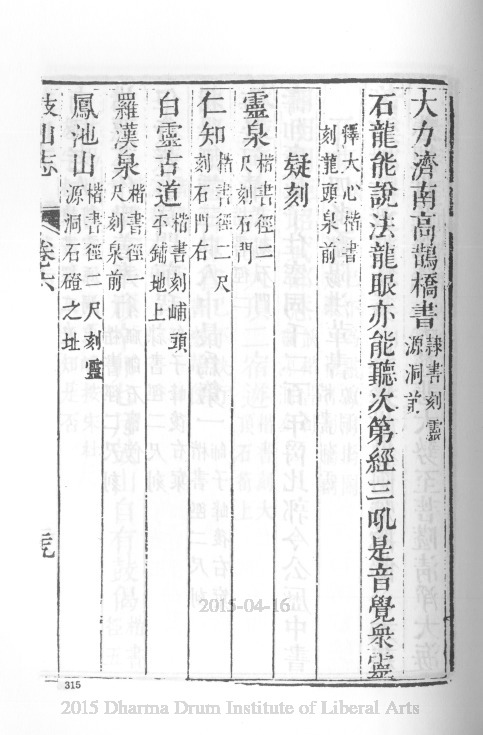 大力濟南高鵲橋書隸書刻靈源洞前
石龍能說法龍眼亦能聽次第經三吼是音覺衆靈
釋大心楷書刻龍頭泉前
疑刻
靈泉楷書徑二尺刻石門
仁知楷書徑二尺刻石門右
白靈古道楷書刻峬頭平鋪地上
羅漢泉楷書徑一尺刻泉前
鳳池山楷書徑二尺刻靈源洞石磴之址
鼓山志 卷六
315
2015-04-16
2015 Dharma Drum Institute of Liberal Arts